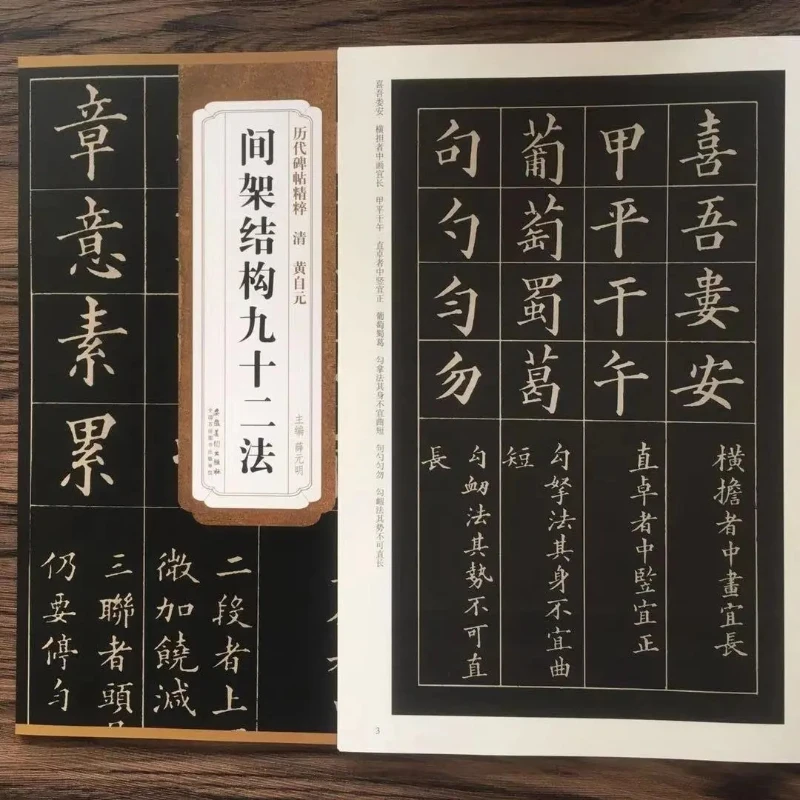 历代碑帖精粹 清 黄自元
间架结构九十二法
主编 薛元明
安徽美术出版社
章意素累
二段者上
微加饒減
三聯者頭
仍要停匀
喜吾娄安 横担者中画宜长 甲平干午 直卓者中竖宜正 葡萄蜀葛 勾拿法其身不宜曲短 句勺匀勿 勾衄法其势不可直长
喜吾婁安
橫擔者中畫宜長
甲平干午
直卓者中竪宜正
葡萄蜀葛
勾拏法其身不宜曲
短
句勺匀勿
勾衄法其勢不可直
長
3